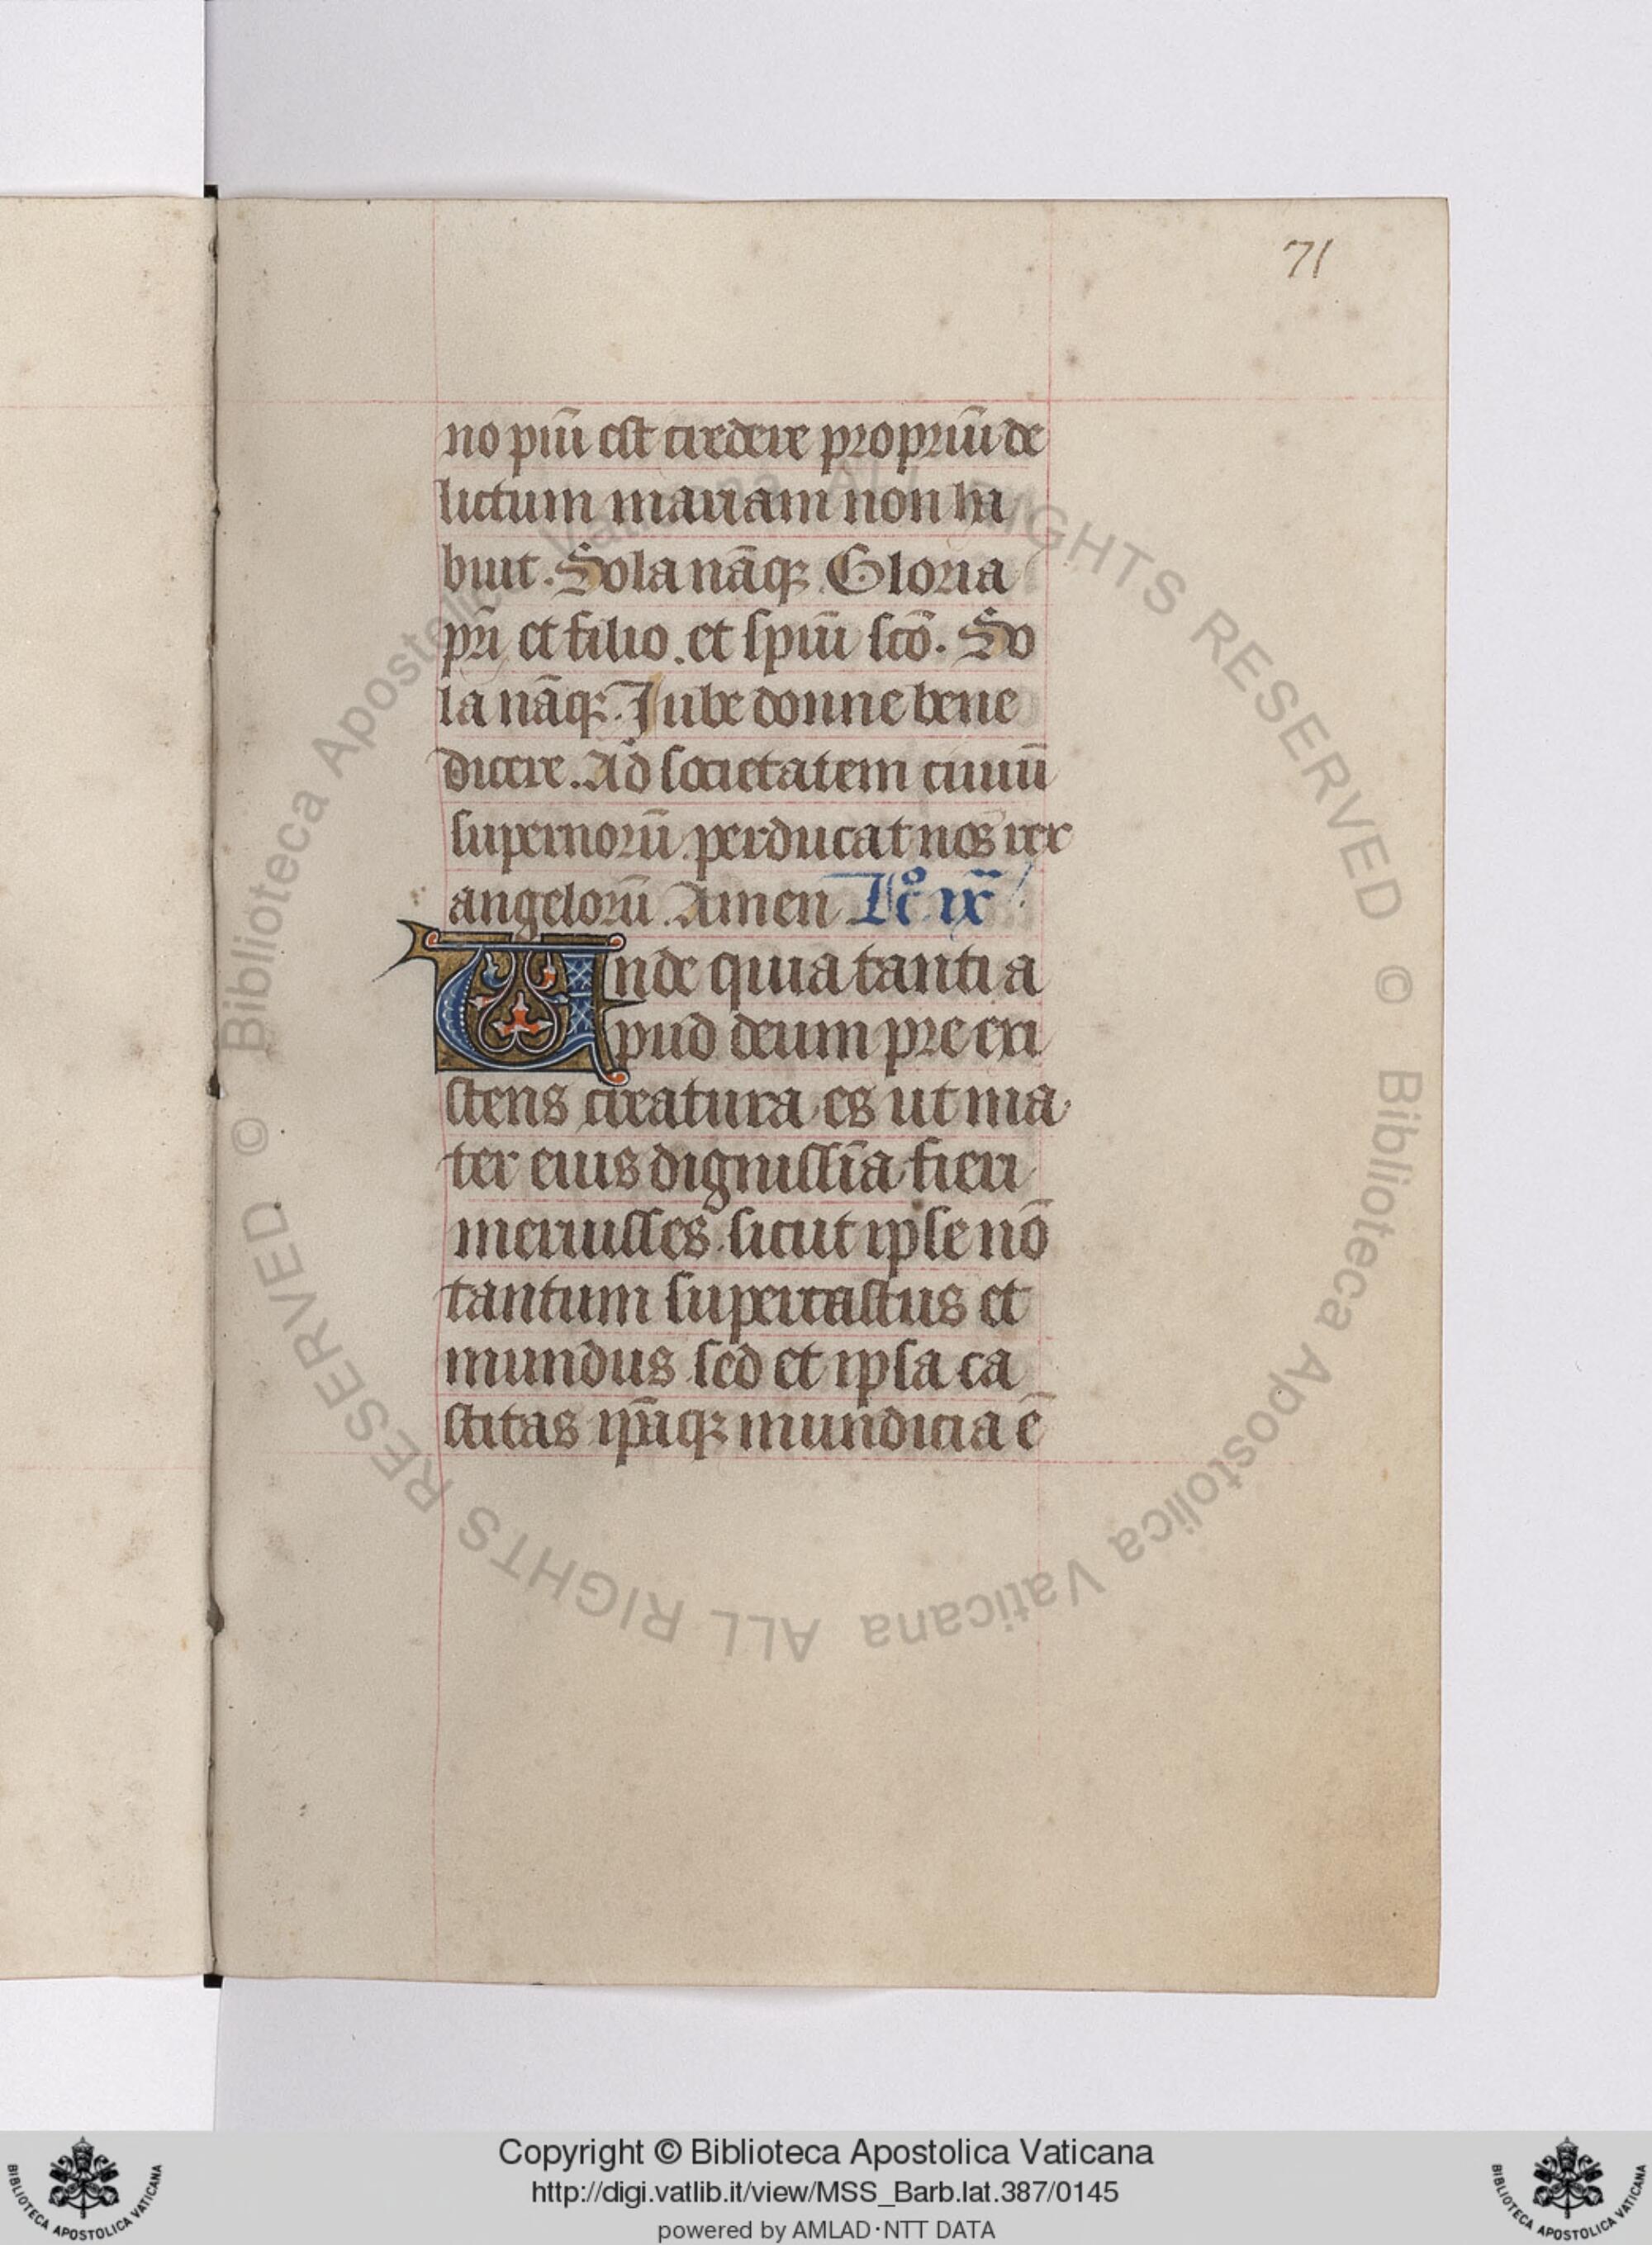 71
no piū est credere propriū de
lictum mariam non ha
buit. Sola nāqꝫ Gloria
pr̄i et filio et spiū scō. So
la nāqꝫ. Jube donne bene
dicere. Ad societatem ciuiū
supernorū perducat nos rex
angelorū Amen Lͦc ix
Unde quia tanti a
pud deum pre exi
stens creatura es ut ma
ter eius dignissīa fieri
meruisses sicut ipse nō
tantum supercastus et
mundus sed et ipsa ca
stitas ip̄aqꝫ mundicia ē
© Biblioteca Apostolica Vaticana ALL RIGHTS RESERVED © Biblioteca Apostolica Vaticana ALL RIGHTS RESERVED
Copyright © Biblioteca Apostolica Vaticana
http://digi.vatlib.it/view/MSS_Barb.lat.387/0145
powered by AMLAD·NTT DATA
BIBLIOTECA APOSTOLICA VATICANA
BIBLIOTECA APOSTOLICA VATICANA